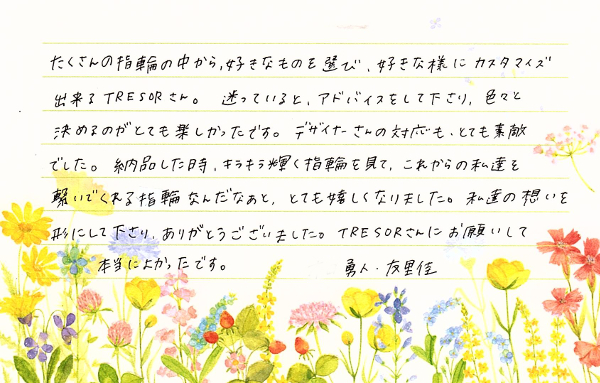 たくさんの指輪の中から、好きなものを選び、好きな様にカスタマイズ
出来るTRESORさん。 迷っていると、アドバイスをして下さり、色々と
決めるのがとても楽しかったです。デザイナーさんの対応も、とても素敵
でした。納品した時、キラキラ輝く指輪を見て、これからの私達を
繋いでくれる指輪なんだなぁと、とても嬉しくなりました。私達の想いを
形にして下さり、ありがとうございました。TRESORさんにお願いして
本当によかったです。 勇人・友里佳